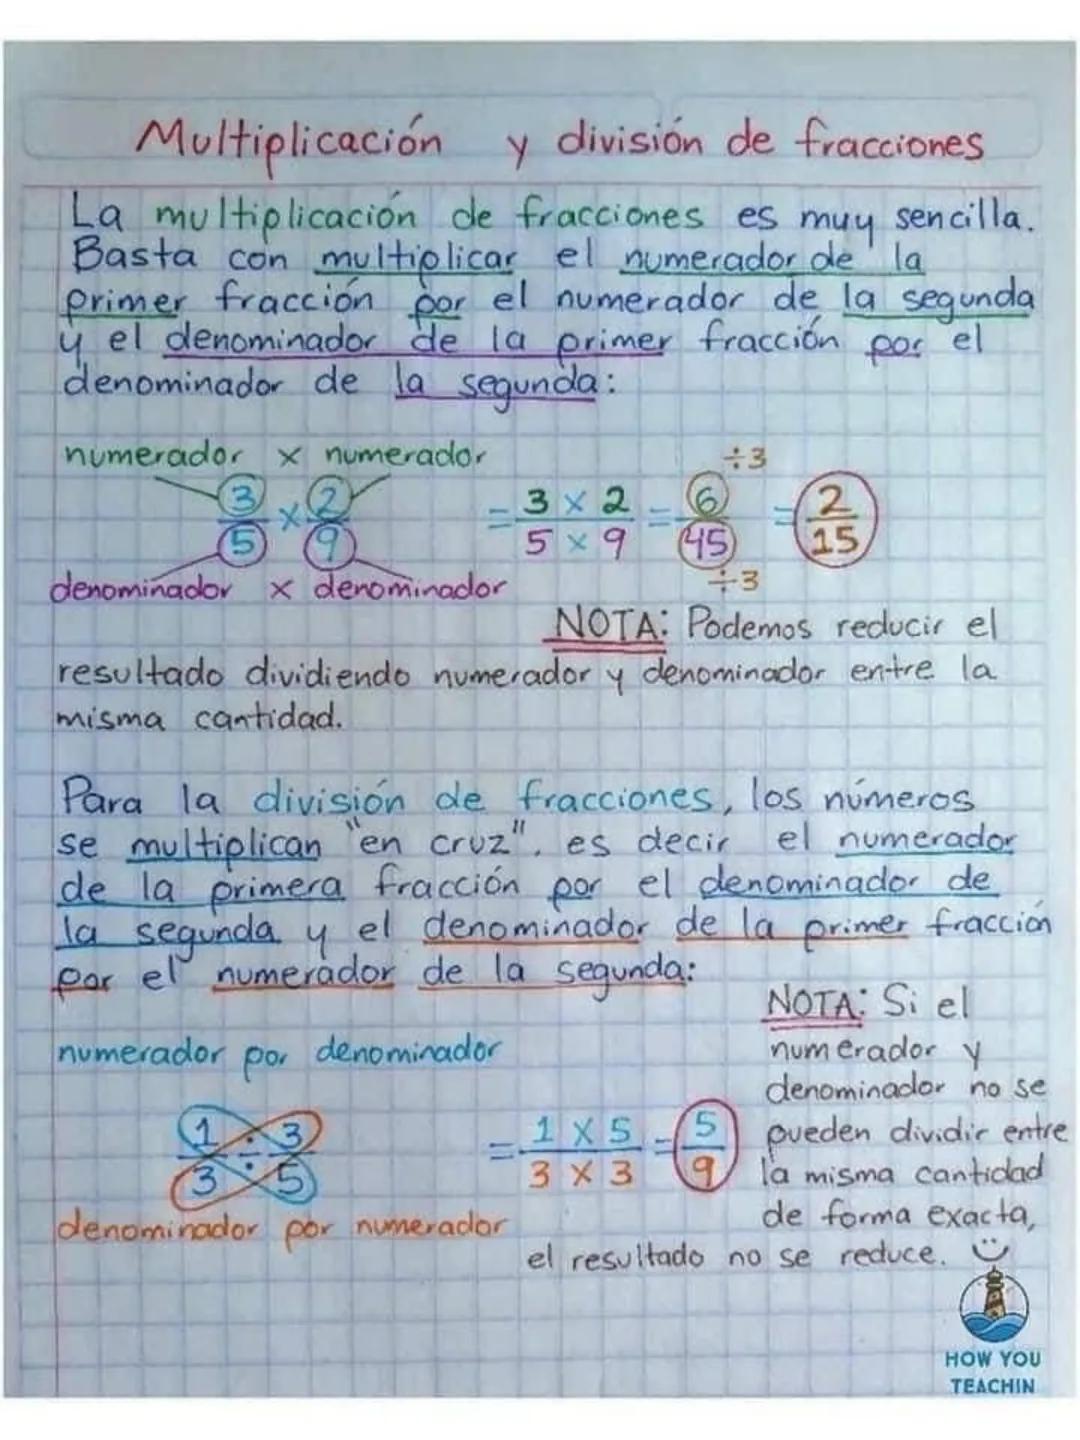 Multiplicación y división de fracciones
La multiplicación de fracciones es muy sencilla.
Basta con multiplicar el numerador de la
primer fracción por el numerador de la segunda
y el denominador de la primer fracción por el
denominador de la segunda:
numerador x numerador
÷3
3 x 2 = 3 x 2 = 6 = 2
5 9 5 x 9 45 15
÷3
denominador x denominador
NOTA: Podemos reducir el
resultado dividiendo numerador y denominador entre la
misma cantidad.
Para la división de fracciones, los números
se multiplican "en cruz", es decir el numerador
de la primera fracción por el denominador de
la segunda y el denominador de la primer fracción
por el numerador de la segunda:
NOTA: Si el
numerador y
denominador no se
pueden dividir entre
la misma cantidad
de forma exacta,
el resultado no se reduce.
numerador por denominador
1 ÷ 3 = 1 x 5 = 5
3 5 3 x 3 9
denominador por numerador
HOW YOU
TEACHIN